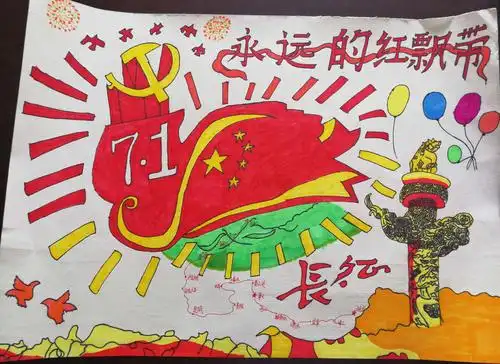 永远的红飘带
7·1
長征